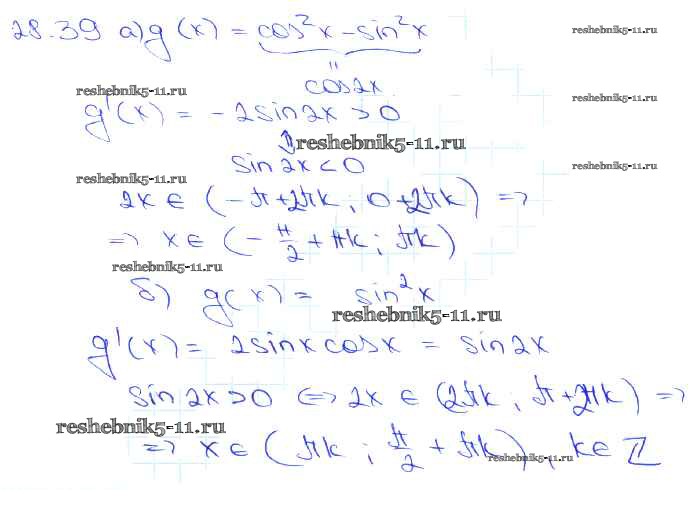 28.39 а) g(x) = cos²x - sin²x
reshebnik5-11.ru
"
cos2x
reshebnik5-11.ru
reshebnik5-11.ru
g'(x) = -2sin2x > 0
⇕ reshebnik5-11.ru
sin2x < 0
reshebnik5-11.ru
reshebnik5-11.ru
2x ∈ (-π+2πk; 0+2πk) =>
=> x ∈ (-π/2 + πk; πk)
reshebnik5-11.ru
б) g(x) = sin²x
reshebnik5-11.ru
g'(x) = 2sinxcosx = sin2x
sin2x > 0 <=> 2x ∈ (2πk; π+2πk) =>
reshebnik5-11.ru
=> x ∈ (πk; π/2 + πk), k ∈ Z
reshebnik5-11.ru